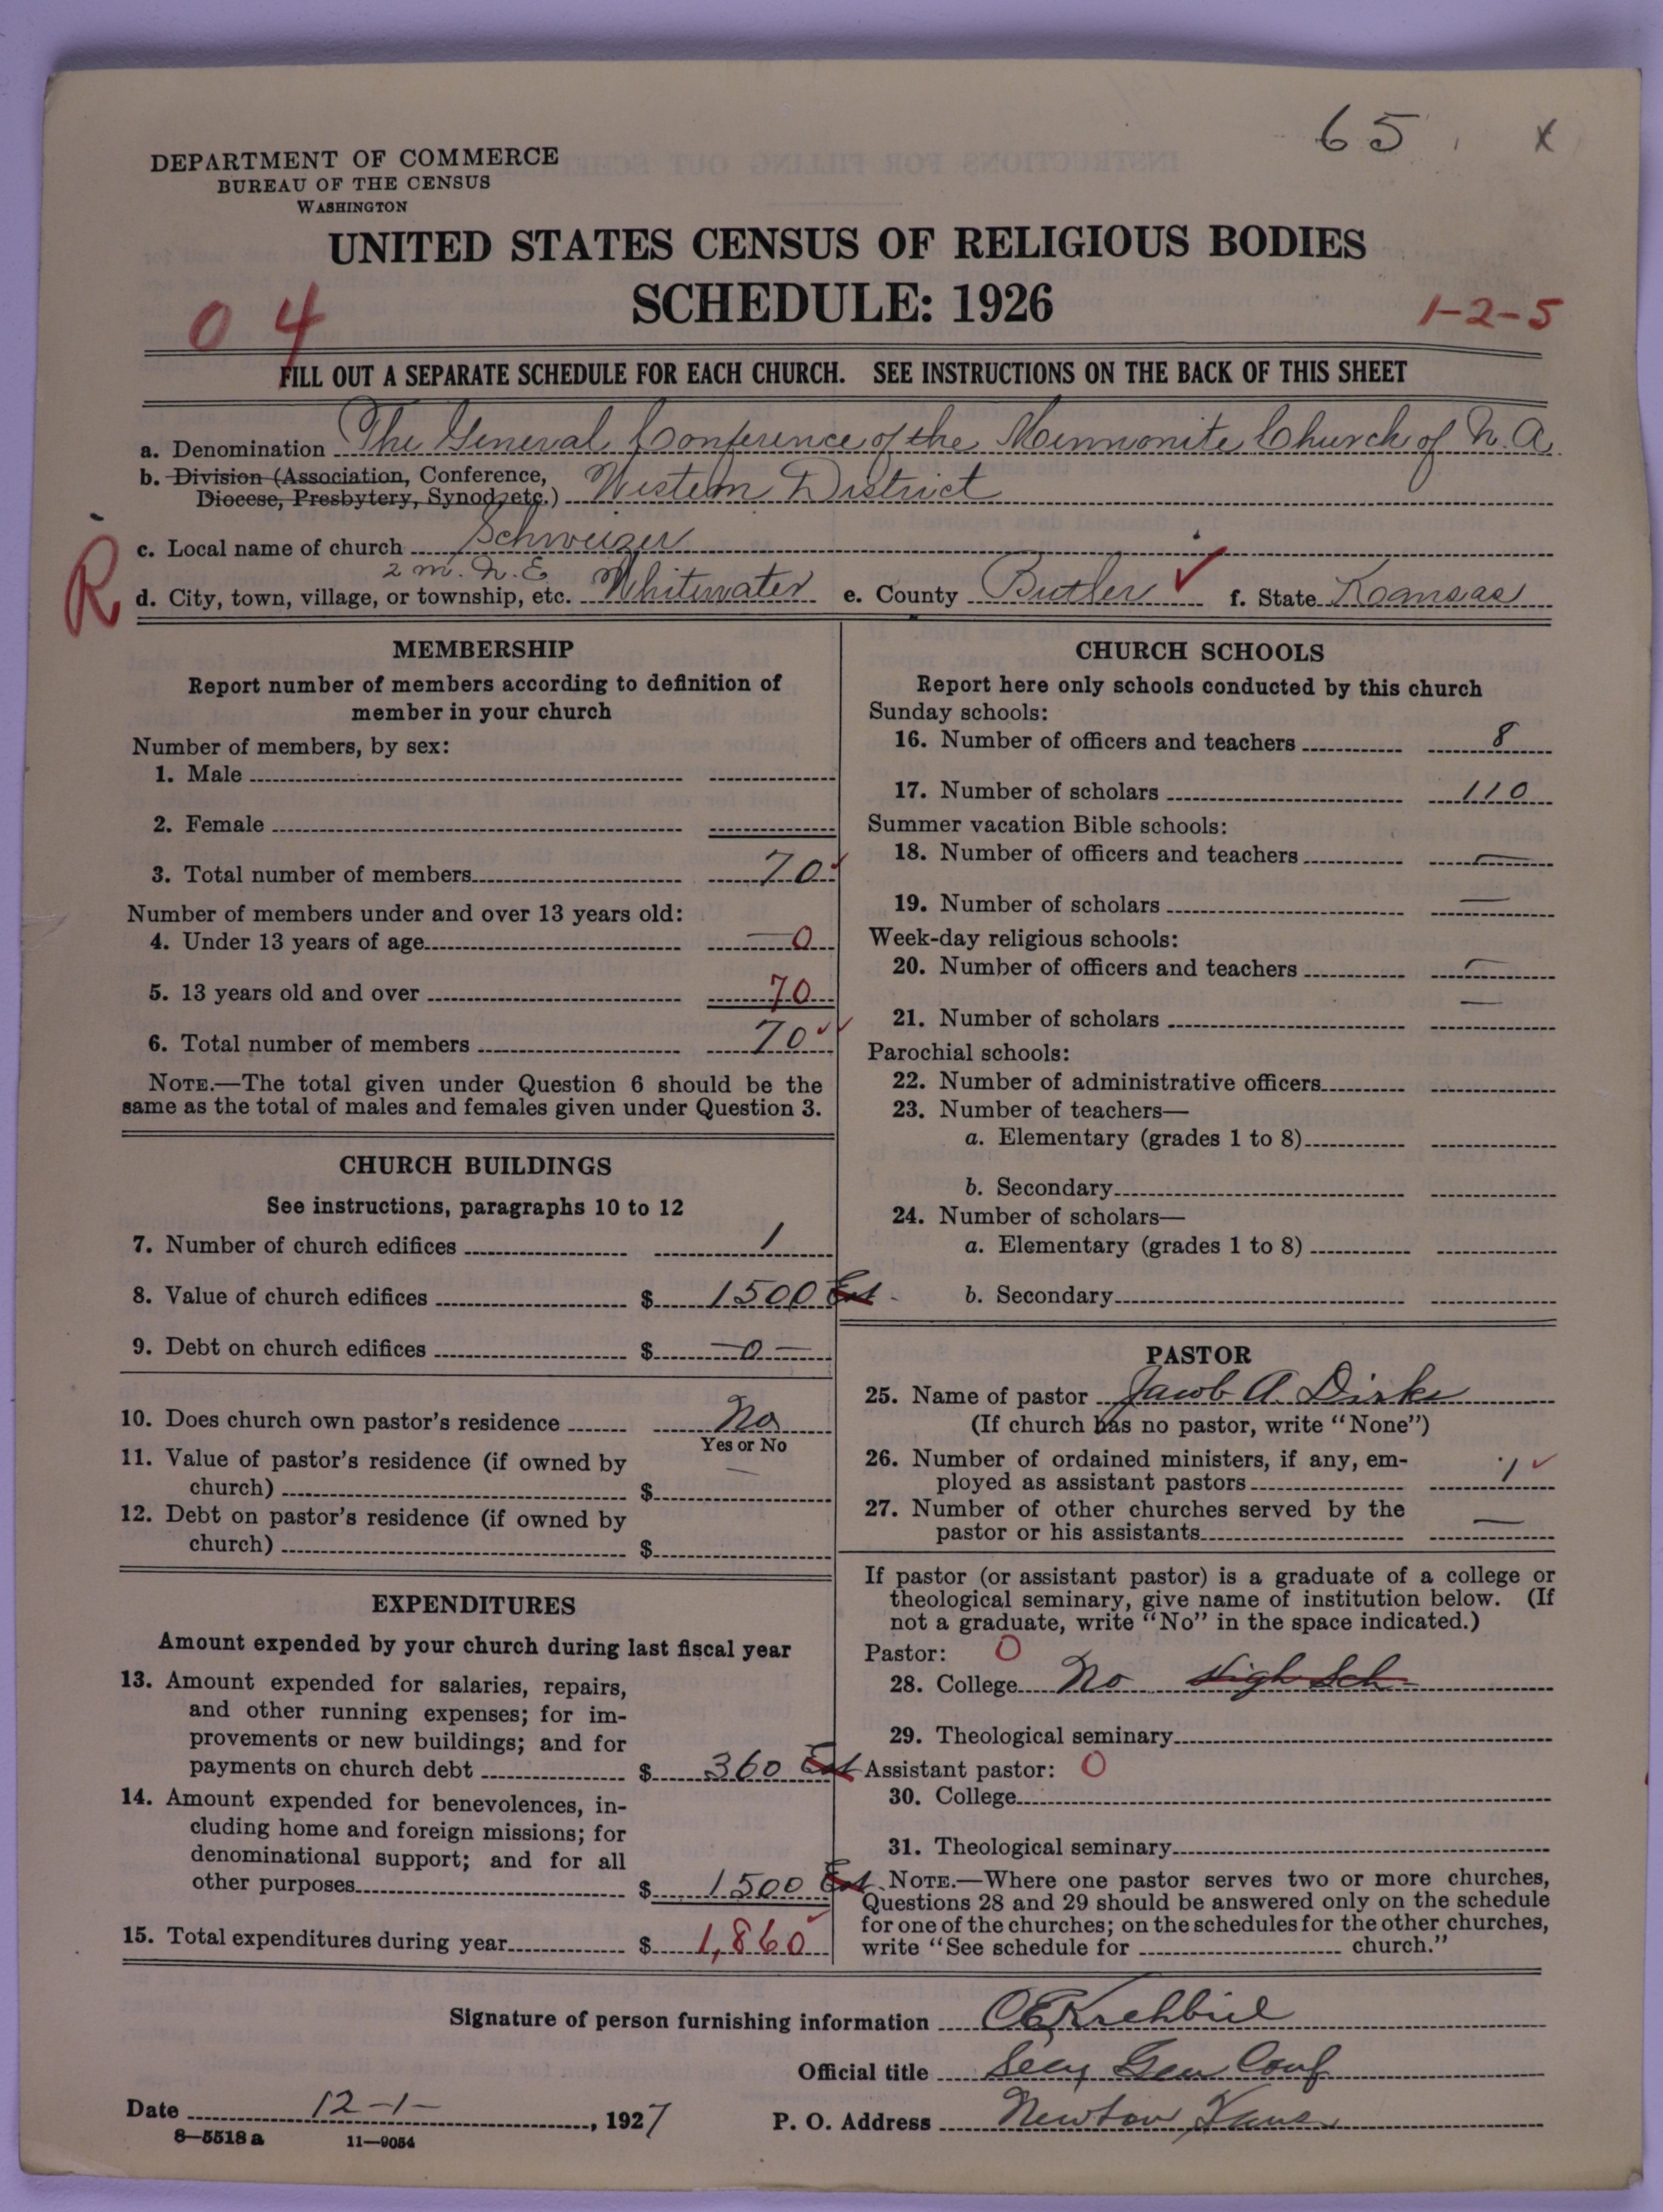 65 x
DEPARTMENT OF COMMERCE
BUREAU OF THE CENSUS
WASHINGTON
UNITED STATES CENSUS OF RELIGIOUS BODIES
SCHEDULE: 1926
04
1-2-5
FILL OUT A SEPARATE SCHEDULE FOR EACH CHURCH. SEE INSTRUCTIONS ON THE BACK OF THIS SHEET
a. Denomination The General Conference of the Mennonite Church of N. A.
b. Division (Association, Conference,
Diocese, Presbytery, Synod, etc.) Western District
c. Local name of church Schweizer
2 m. N. E
R d. City, town, village, or township, etc. Whitewater e. County Butler ✓ f. State Kansas
MEMBERSHIP
Report number of members according to definition of
member in your church
Number of members, by sex:
1. Male
2. Female
3. Total number of members 70 ✓
Number of members under and over 13 years old:
4. Under 13 years of age 0
5. 13 years old and over 70
6. Total number of members 70 ✓✓
NOTE.—The total given under Question 6 should be the
same as the total of males and females given under Question 3.
CHURCH BUILDINGS
See instructions, paragraphs 10 to 12
7. Number of church edifices 1
8. Value of church edifices $ 1500 Est
9. Debt on church edifices $ —0—
10. Does church own pastor's residence No
Yes or No
11. Value of pastor's residence (if owned by
church) $ —
12. Debt on pastor's residence (if owned by
church) $
EXPENDITURES
Amount expended by your church during last fiscal year
13. Amount expended for salaries, repairs,
and other running expenses; for im-
provements or new buildings; and for
payments on church debt $ 360 Est
14. Amount expended for benevolences, in-
cluding home and foreign missions; for
denominational support; and for all
other purposes $ 1500 Est
15. Total expenditures during year $ 1,860 ✓
CHURCH SCHOOLS
Report here only schools conducted by this church
Sunday schools:
16. Number of officers and teachers 8
17. Number of scholars 110
Summer vacation Bible schools:
18. Number of officers and teachers —
19. Number of scholars —
Week-day religious schools:
20. Number of officers and teachers —
21. Number of scholars —
Parochial schools:
22. Number of administrative officers
23. Number of teachers—
a. Elementary (grades 1 to 8)
b. Secondary
24. Number of scholars—
a. Elementary (grades 1 to 8)
b. Secondary
PASTOR
25. Name of pastor Jacob A. Dirks
(If church has no pastor, write "None")
26. Number of ordained ministers, if any, em-
ployed as assistant pastors 1 ✓
27. Number of other churches served by the
pastor or his assistants —
If pastor (or assistant pastor) is a graduate of a college or
theological seminary, give name of institution below. (If
not a graduate, write "No" in the space indicated.)
Pastor: 0
28. College No High Sch
29. Theological seminary
Assistant pastor: 0
30. College
31. Theological seminary
NOTE.—Where one pastor serves two or more churches,
Questions 28 and 29 should be answered only on the schedule
for one of the churches; on the schedules for the other churches,
write "See schedule for church."
Signature of person furnishing information C E Krehbiel
Official title Secy Gen Conf
Date 12-1-, 1927 P. O. Address Newton Kans
8—5518 a 11—9054